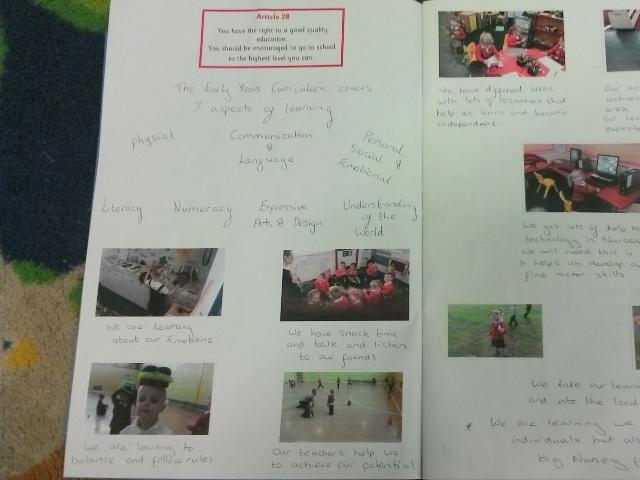 Article 28
You have the right to a good quality
education.
You should be encouraged to go to school
to the highest level you can.
The Early Years Curriculum covers
7 aspects of learning
physial
Communication
&
Language
Personal
Social &
Emotional
Literacy
Numeracy
Expressive
Arts & Design
Understanding
of the
World
We are learning
about our Emotions
We have snack time
and talk and listen
to our friends
We are learning to
balance and follow rules
Our teachers help us
to achieve our potential
We have different areas,
with lots of resources that
help us learn and become
independent.
Our
achie
area
Our te
expect
We get lots of help to
technology in Nurse
We will need this
It helps us develop
fine motor skills
We take our lear
and into the local
* We are learning we
individuals but als
big Nursery f